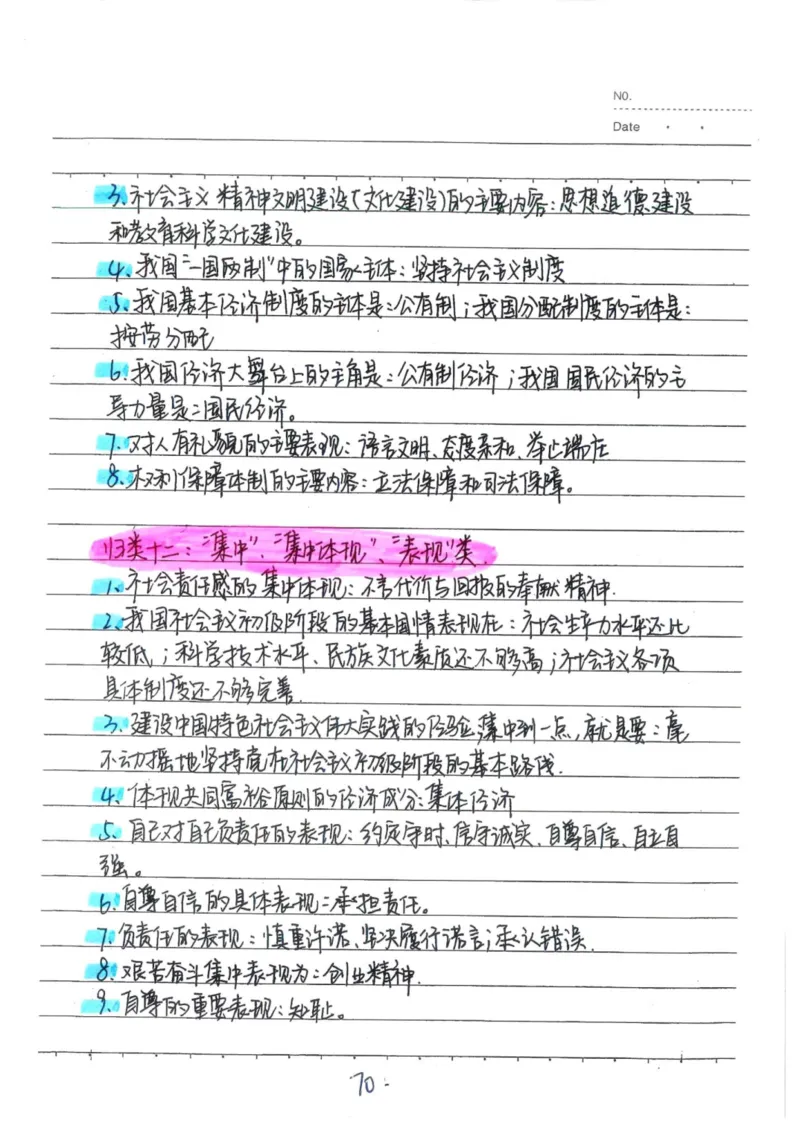 NO.
Date
3.社会主义精神文明建设(文化建设)的主要内容:思想道德建设
和教育科学文化建设。
4.我国"一国两制"中的国家主体:坚持社会主义制度
5.我国基本经济制度的主体是:公有制;我国分配制度的主体是:
按劳分配
6.我国经济大舞台上的主角是:公有制经济;我国国民经济的主
导力量是:国民经济。
7.对人有礼貌的主要表现:语言文明、态度亲和、举止端庄
8.权利保障体制的主要内容:立法保障和司法保障。
归类十二:"集中"、"集中体现"、"表现"类.
1、社会责任感的集中体现:不言代价与回报的奉献精神.
2、我国社会主义初级阶段的基本国情表现在:社会生产力水平还比
较低,;科学技术水平、民族文化素质还不够高;社会主义各项
具体制度还不够完善.
3.建设中国特色社会主义伟大实践的经验,集中到一点,就是要:毫
不动摇地坚持党在社会主义初级阶段的基本路线.
4、体现共同富裕原则的经济成分:集体经济
5、自己对自己负责任的表现:约定守时、信守诚实、自尊自信、自立自
强。
6.自尊自信的具体表现:承担责任。
7.负责任的表现:慎重许诺、坚决履行诺言;承认错误.
8.艰苦奋斗集中表现为:创业精神.
9.自尊的重要表现:知耻。
70